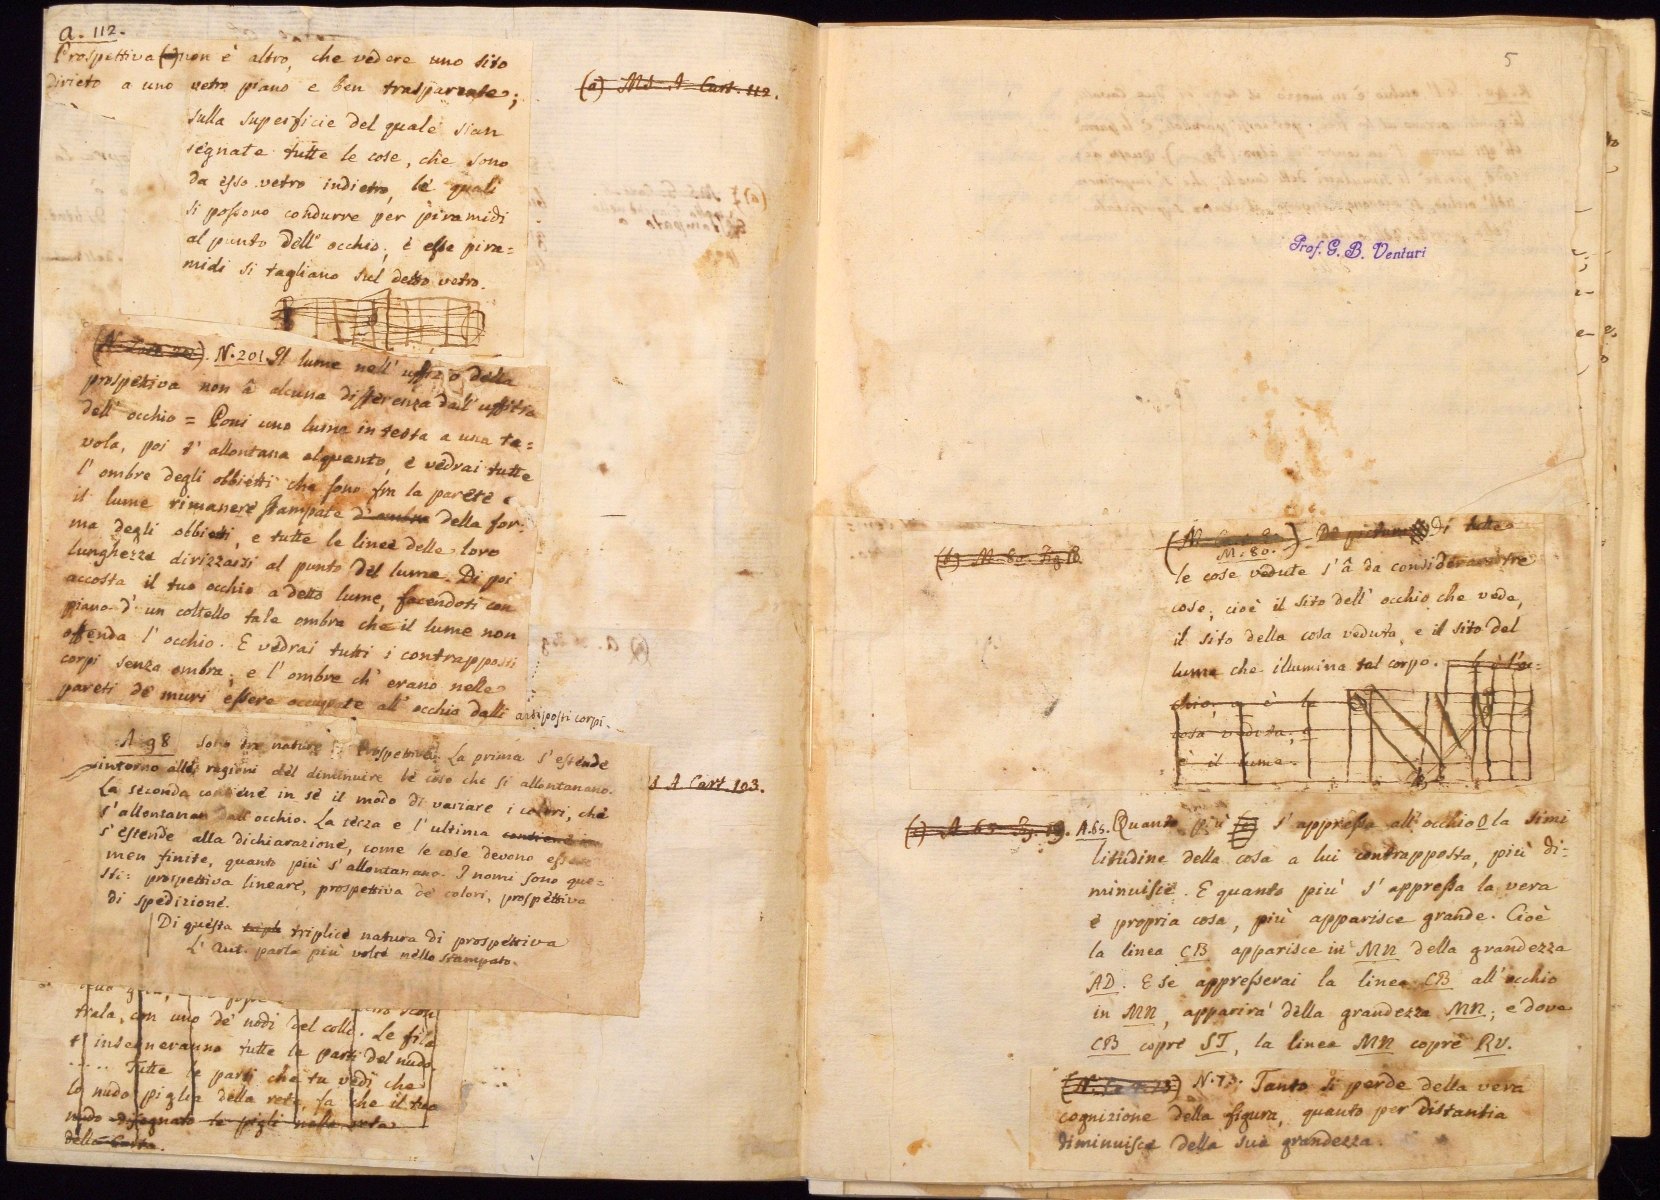 a. 112.
Prospettiva (a) non è altro, che vedere uno sito
dirieto a uno vetro piano e ben trasparente;
sulla superficie del quale sian
segnate tutte le cose, che sono
da esso vetro indietro, le quali
si possono condurre per piramidi
al punto dell' occhio; e esse pira=
midi si tagliano sul detto vetro.
(a) Ms. A Cart. 112.
N. 201. Il lume nell' uffizio della
prospettiva non â alcuna differenza dall' uffitio
dell' occhio = Poni uno lume in testa a una ta=
vola, poi t' allontana alquanto, e vedrai tutte
l' ombre degli obbietti che sono fra la parete e
il lume rimanere stampate d' ombra della for=
ma degli obbietti, e tutte le linee delle loro
lunghezze dirizzarsi al punto del lume. Di poi
accosta il tuo occhio a detto lume, facendoti con
piano d' un coltello tale ombra che il lume non
offenda l' occhio. E vedrai tutti i contrapposti
corpi senza ombra; e l' ombre ch' erano nelle
pareti de muri essere occupate all' occhio dalli antiposti corpi.
A 98 Sono tre nature di Prospettiva. La prima s' estende
intorno alle ragioni del diminuire le cose che si allontanano.
La seconda contiene in sè il modo di variare i colori, che
s' allontanan dall' occhio. La terza e l' ultima contiene in
s' estende alla dichiarazione, come le cose devono essere
men finite, quanto più s' allontanano. I nomi sono que=
sti: prospettiva lineare, prospettiva de' colori, prospettiva
di spedizione.
Di questa tripl triplice natura di prospettiva
L' Aut. parla più volte nello Stampato.
s A Cart. 103.
trala, con uno de' nodi del collo. Le fila
t' insegneranno tutte le parti del nudo.
..... Tutte le parti che tu vedi che
lo nudo piglia della rete, fa che il tuo
nudo disegnato le pigli nella rete
della Carta.
5
Prof. G. B. Venturi
(b) M. 80. Fig. 18
M. 80. Di tutte
le cose vedute s' â da considerare tre
cose; cioè il sito dell' occhio che vede,
il sito della cosa veduta, e il sito del
lume che illumina tal corpo. b è l' oc=
chio, a è la
cosa veduta, c
è il lume.
(c) A. 65. Fig. 19. A. 65. Quanto più s' appressa all' occhio O la simi
litudine della cosa a lui contrapposta, più di=
minuisce. E quanto più s' appressa la vera
e propria cosa, più apparisce grande. Cioè
la linea CB apparisce in MN della grandezza
AD. E se appresserai la linea CB all' occhio
in MN, apparirà della grandezza MN; e dove
CB copre ST, la linea MN copre RV.
N. 73. Tanto si perde della vera
cognizione della figura, quanto per distantia
diminuisce della sua grandezza.